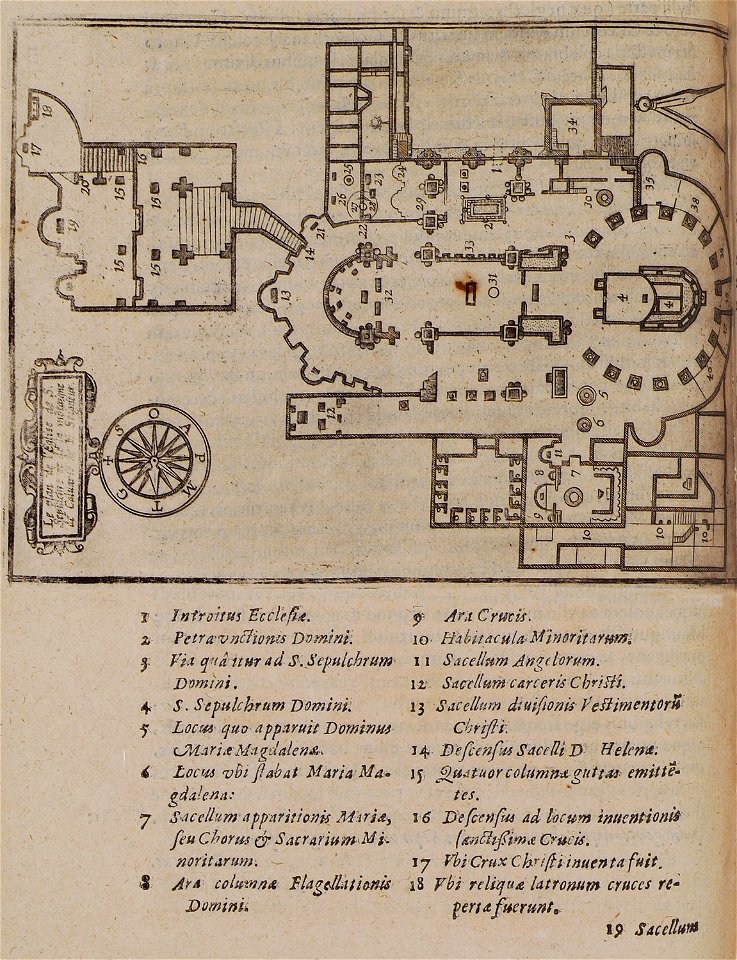 Le plan de l'Eglise de S.
Sepulchre de la montagne
de Calvaire de
1 Introitus Ecclesiæ.
2 Petra vnctionis Domini.
3 Via quâ itur ad S. Sepulchrum
Domini.
4 S. Sepulchrum Domini.
5 Locus quo apparuit Dominus
Mariæ Magdalenæ.
6 Locus vbi stabat Maria Ma-
gdalena:
7 Sacellum apparitionis Mariæ,
seu Chorus & Sacrarium Mi-
noritarum.
8 Ara columnæ Flagellationis
Domini.
9 Ara Crucis.
10 Habitacula Minoritarum.
11 Sacellum Angelorum.
12 Sacellum carceris Christi.
13 Sacellum diuisionis Vestimentorũ
Christi.
14 Descensus Sacelli D Helenæ.
15 Quatuor columnæ guttas emittẽ-
tes.
16 Descensus ad locum inuentionis
sanctißimæ Crucis.
17 Vbi Crux Christi inuenta fuit.
18 Vbi reliquæ latronum cruces re-
pertæ fuerunt.
19 Sacellum